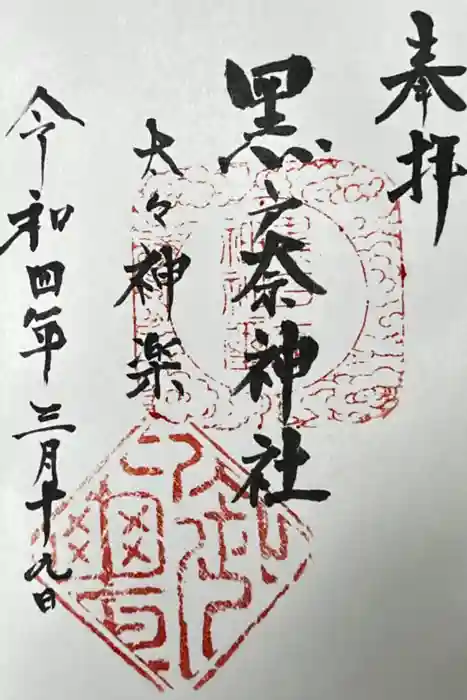 奉拝
黒六奈神社
太々神楽
令和四年三月十九日